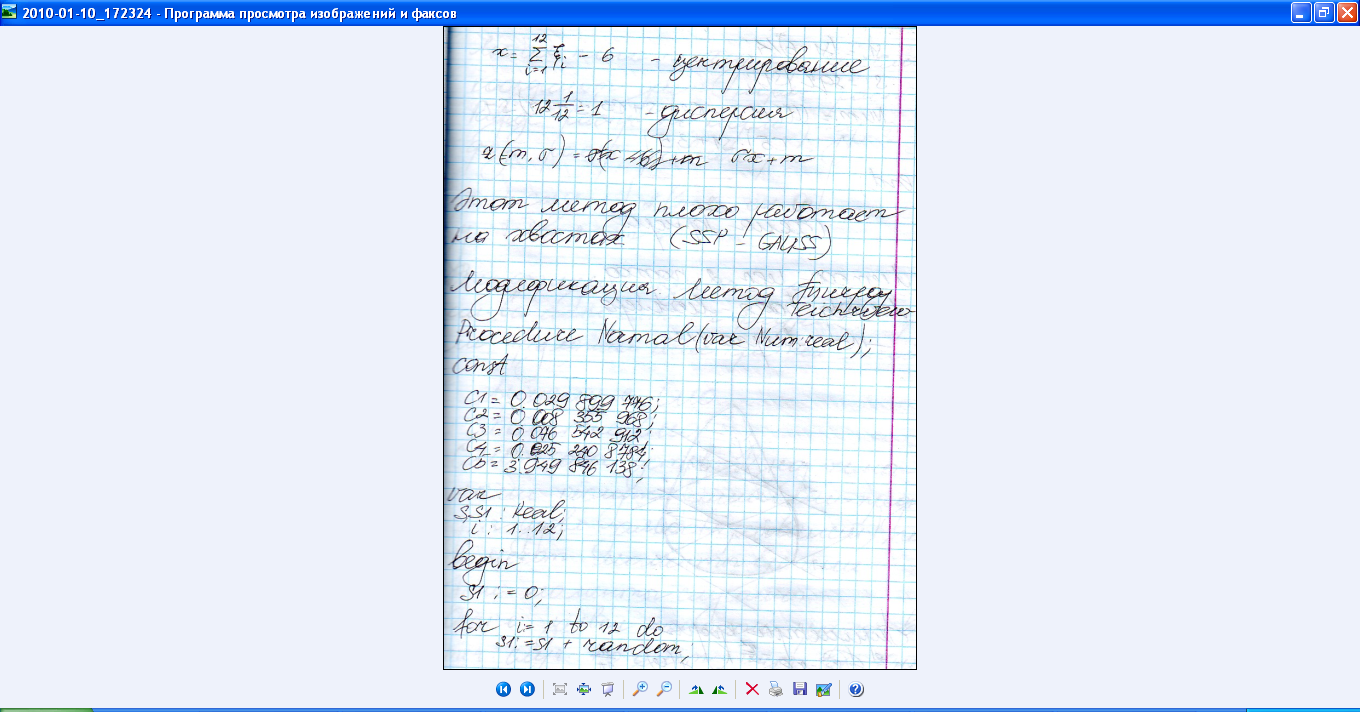 2010-01-10_172324 - Программа просмотра изображений и факсов
x = 12 Σ i=1 ξi - 6 - центрирование
12 1/12 = 1 - дисперсия
(m, σ) = σx + m
Этот метод плохо работает
на хвостах (SSP - GAUSS)
Модификация. Метод
Procedure Normal(var Num:real);
const
C1 = 0.029 899 776;
C2 = 0.008 355 968;
C3 = 0.076 542 912;
C4 = 0.025 240 8784;
C5 = 3.949 846 138;
var
S,S1 : Real;
i : 1..12;
begin
S1 := 0;
for i= 1 to 12 do
S1:=S1 + random;